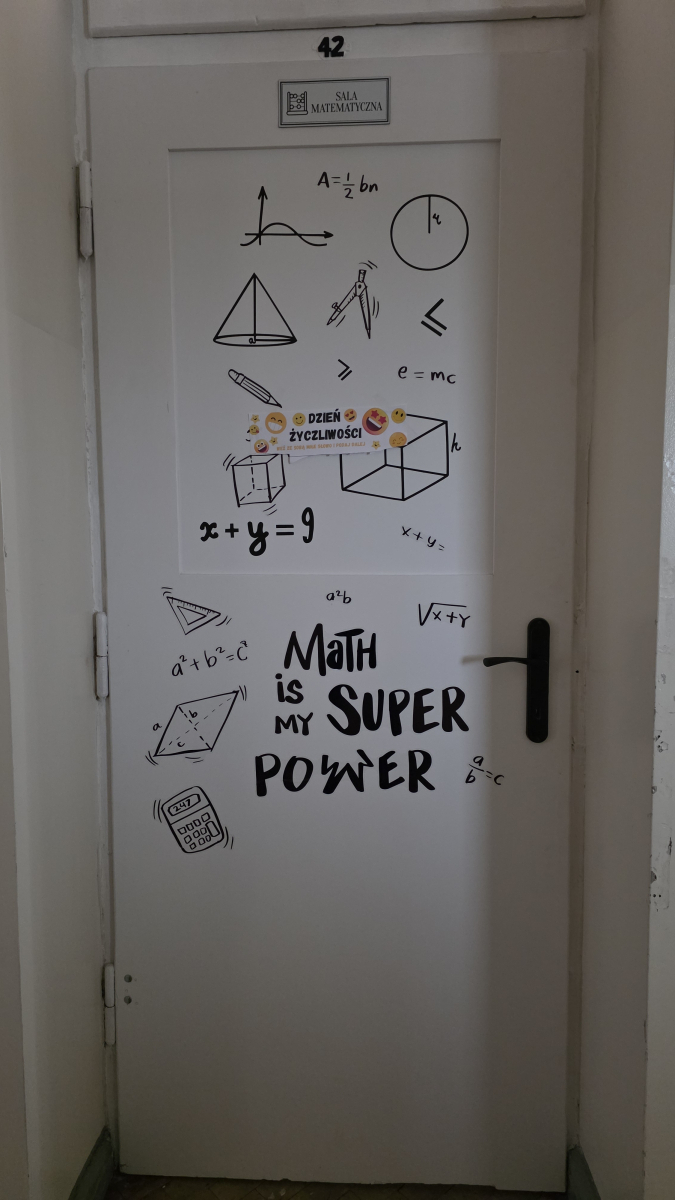 42
SALA
MATEMATYCZNA
A=½bn
r
a
⩽
⩾
e=mc
DZIEŃ
ŻYCZLIWOŚCI
h
x+y=9
x+y=
a²b
√x+y
a²+b²=c²
MATH
is
MY SUPER
POWER
a
b
c
a/b=c
247